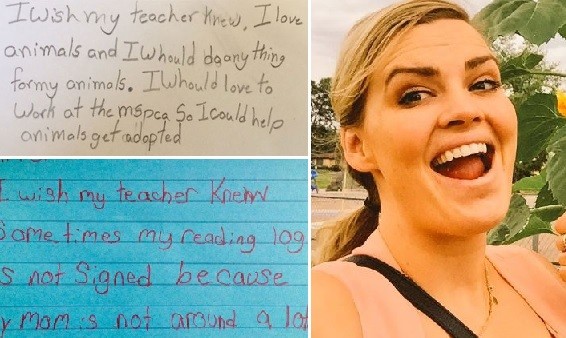 I wish my teacher knew, I love
animals and I Whould do any thing
for my animals. I Whould love to
work at the mspca So I could help
animals get adopted
I wish my teacher Knew
Some times my reading log
s not Signed because
y mom is not around a lot